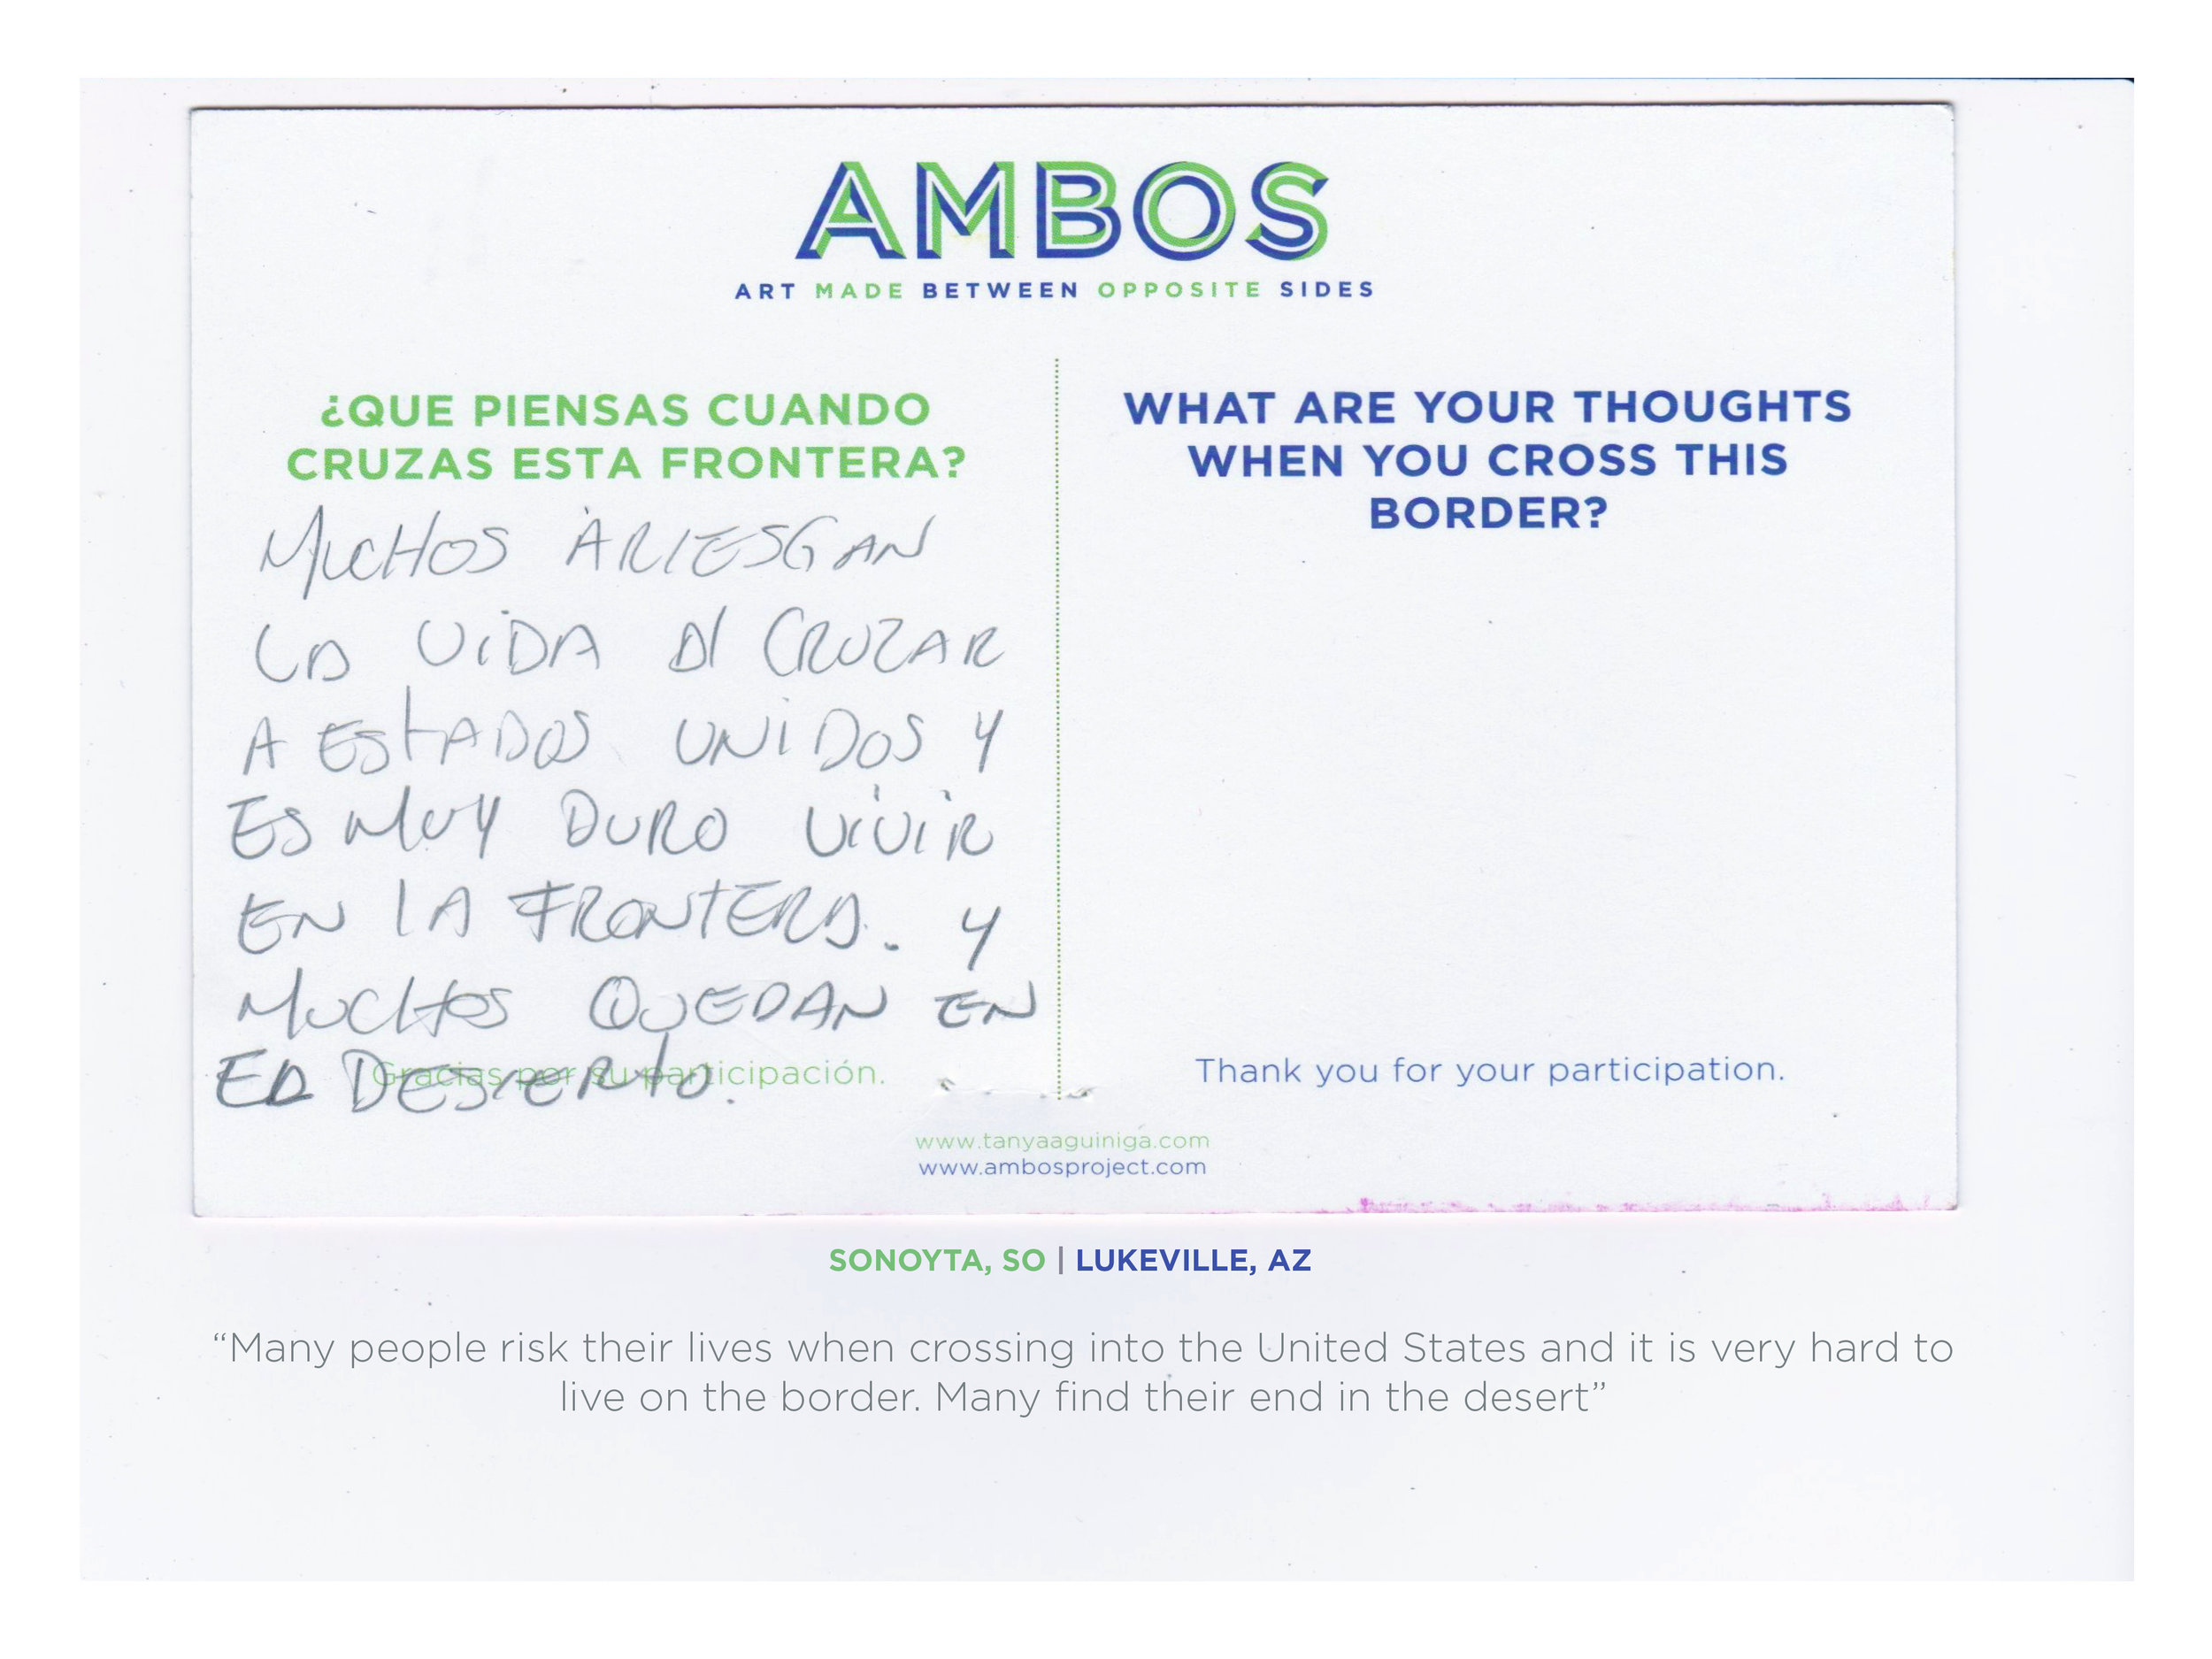 AMBOS
ART MADE BETWEEN OPPOSITE SIDES
¿QUE PIENSAS CUANDO
CRUZAS ESTA FRONTERA?
MUCHOS ARIESGAN
LA VIDA Al CRUZAR
A EStADOS UNIDOS Y
ES MUY DURO ViViR
EN lA FRONTERA. Y
MUCHOS QUEDAN EN
EL DESIERtO.
Gracias por su participación.
WHAT ARE YOUR THOUGHTS
WHEN YOU CROSS THIS
BORDER?
Thank you for your participation.
www.tanyaaguiniga.com
www.ambosproject.com
SONOYTA, SO | LUKEVILLE, AZ
“Many people risk their lives when crossing into the United States and it is very hard to
live on the border. Many find their end in the desert”